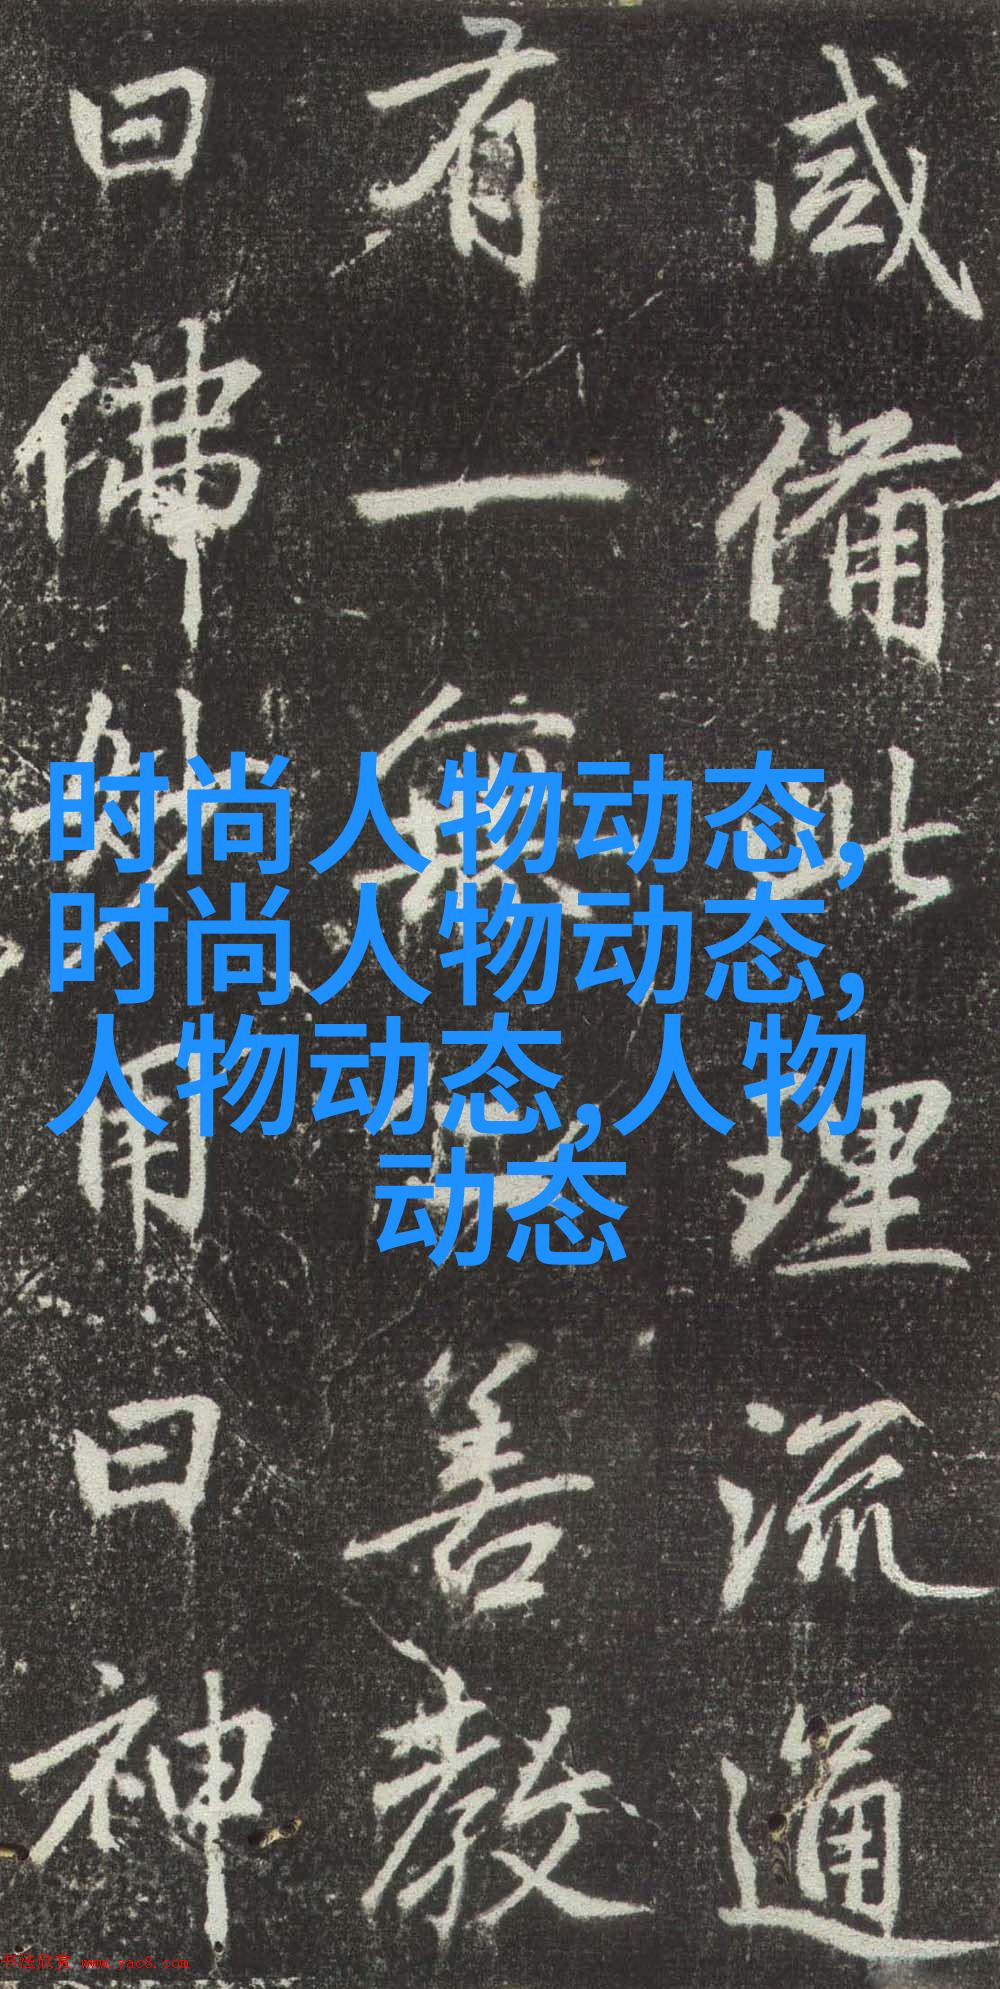 咸備此理流通
有一無善教
曰佛妙用曰神
时尚人物动态,
时尚人物动态,
人物动态,人物
动态
书法欣赏 www.yac8.com